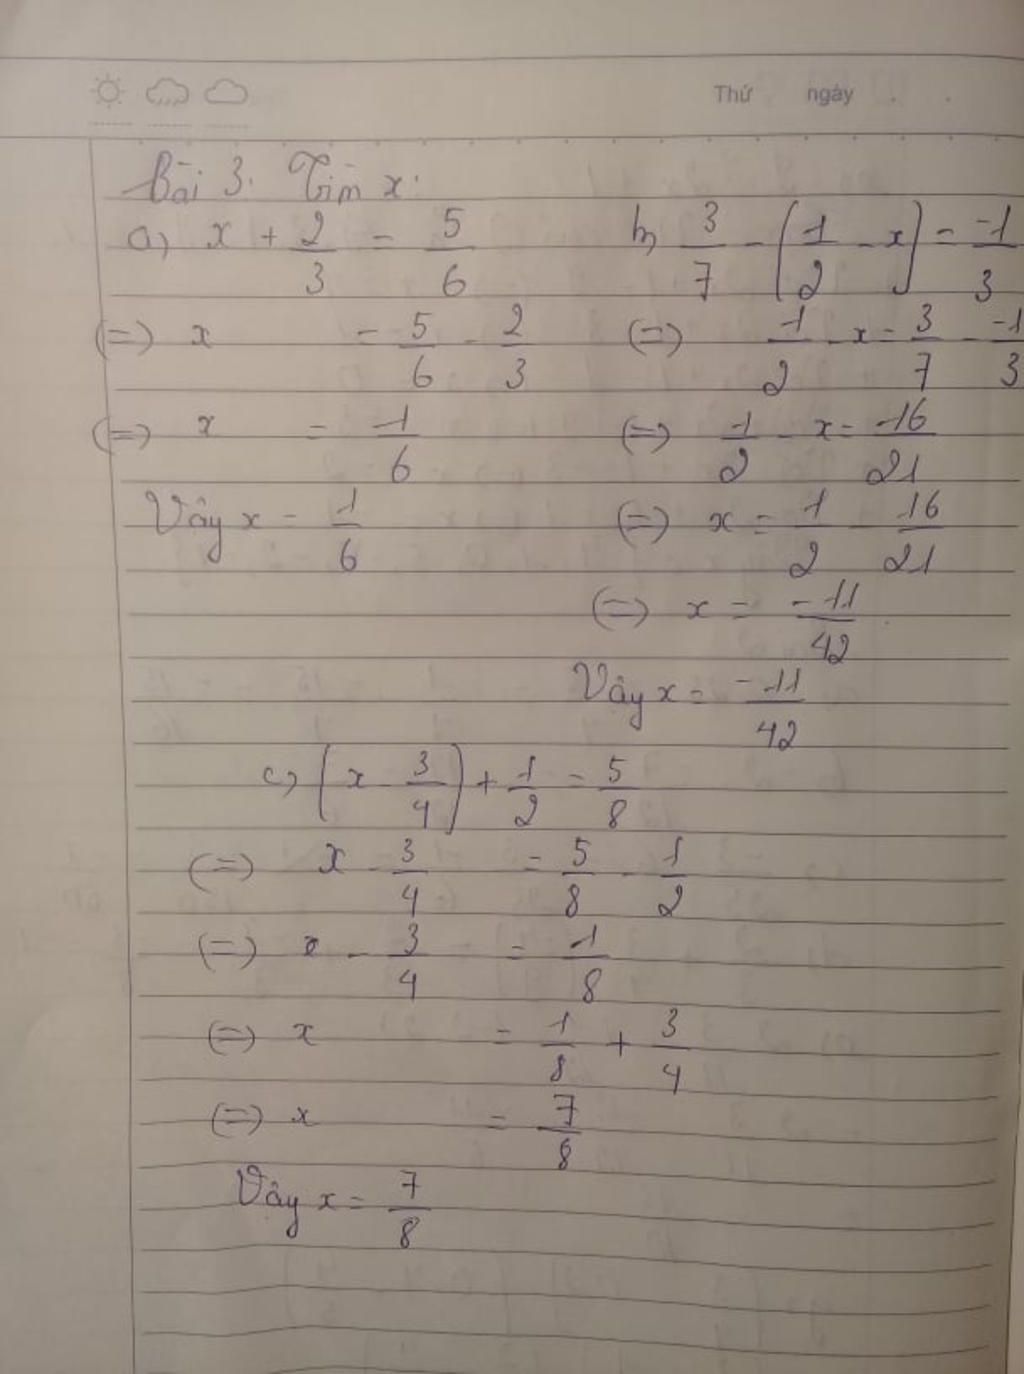 Thứ ngày
Bài 3. Tìm x:
a) x + 2/3 = 5/6
(=) x = 5/6 - 2/3
(=) x = 1/6
Vậy x = 1/6
b) 3/7 - (1/2 - x) = -1/3
(=) 1/2 - x = 3/7 - -1/3
(=) 1/2 - x = 16/21
(=) x = 1/2 - 16/21
(=) x = -11/42
Vậy x = -11/42
c) (x - 3/4) + 1/2 = 5/8
(=) x - 3/4 = 5/8 - 1/2
(=) x - 3/4 = 1/8
(=) x = 1/8 + 3/4
(=) x = 7/8
Vậy x = 7/8